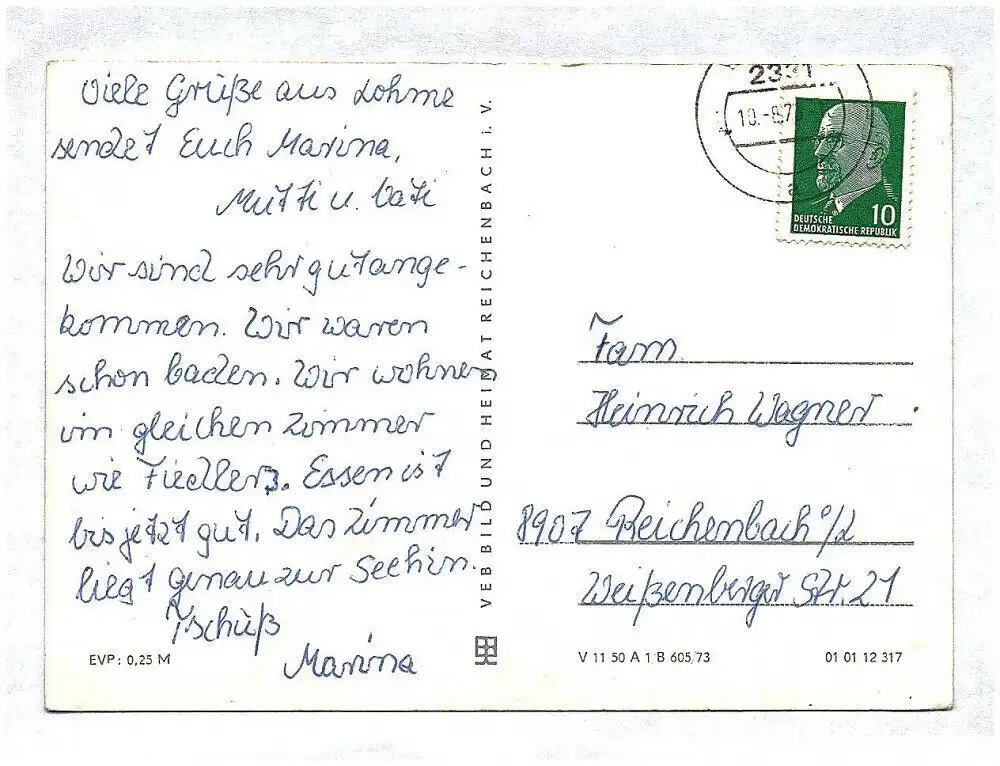 Viele Grüße aus Lohme
sendet Euch Marina,
Mutti u. Vati
Wir sind sehr gut ange-
kommen. Wir waren
schon baden. Wir wohnen
im gleichen Zimmer
wie Fiedlers. Essen ist
bis jetzt gut. Das Zimmer
liegt genau zur See hin.
Tschüß
Marina
EVP: 0,25 M
VEB BILD UND HEIMAT REICHENBACH I. V.
2331
10.-8.7
a
10
DEUTSCHE
DEMOKRATISCHE REPUBLIK
Fam.
Heinrich Wagner
8907 Reichenbach o/L
Weißenberger Str. 21
V 11 50 A 1/B 605/73
01 01 12 317